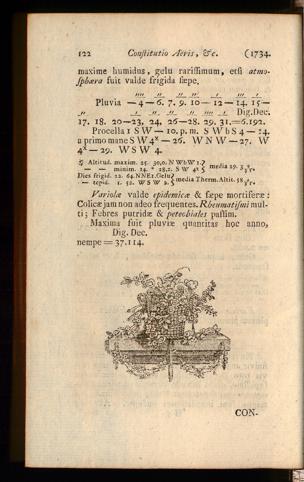 122 Constitutio Aeris, &c. (1734.
maxime humidus, gelu rarissimum, etsi atmo-
sphæra fuit valde frigida sæpe.
Pluvia — 4 — 6. 7. 9. 10 — 12 — 14. 15 —
Dig. Dec.
17. 18. 20 — 23, 24, 26 — 28. 29. 31. — 6.192.
Procella 1 S W — 10. p. m. S W b S 4 — 14.
a primo mane S W 4 — 26. W N W — 27. W
4 — 29. W S W 4.
Altitud. maxim. 25. 30,0. N W b W 1.
— — minim. 14. 28,2. S W 4 media 29.
Dies frigid. 22. 64. N N E 1. Gelu
— tepid. 1. 52. W S W 2. media Therm. Altit. 58.
Variolæ valde epidemicæ & sæpe mortiferæ:
Colicæ jam non adeo frequentes. Rheumatismi mul-
ti; Febres putridæ & petechiales passim.
Maxima fuit pluviæ quantitas hoc anno,
Dig. Dec.
nempe = 37.114.
CON-